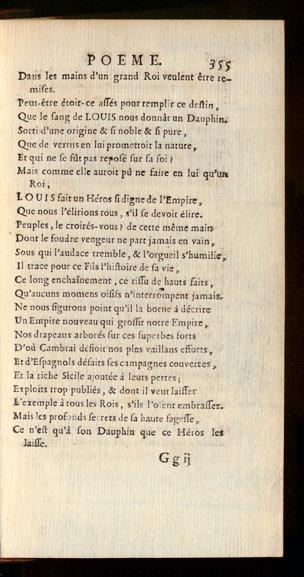 POEME. 355
Dans les mains d'un grand Roi veulent être re-
mises.
Peut-être étoit-ce assés pour remplir ce destin,
Que le sang de LOUIS nous donnât un Dauphin.
Sorti d'une origine & si noble & si pure,
Que de vertus en lui promettoit la nature,
Et qui ne se fût pas reposé sur sa foi?
Mais comme elle auroit pû ne faire en lui qu'un
Roi;
LOUIS fait un Héros si digne de l'Empire,
Que nous l'élirions tous, s'il se devoit élire.
Peuples, le croirés-vous? de cette même main
Dont le foudre vengeur ne part jamais en vain,
Sous qui l'audace tremble, & l'orgueil s'humilie,
Il trace pour ce Fils l'histoire de sa vie,
Ce long enchaînement, ce tissu de hauts faits,
Qu'aucuns momens oisifs n'interrompent jamais.
Ne nous figurons point qu'il la borne à décrire
Un Empire nouveau qui grossit notre Empire,
Nos drapeaux arborés sur ces superbes forts
D'où Cambrai défioit nos plus vaillans efforts,
Et d'Espagnols défaits ses campagnes couvertes,
Et la riche Sicile ajoutée à leurs pertes;
Exploits trop publiés, & dont il veut laisser
L'exemple à tous les Rois, s'ils l'osent embrasser.
Mais les profonds secrets de sa haute sagesse,
Ce n'est qu'à son Dauphin que ce Héros les
laisse.
G g ij